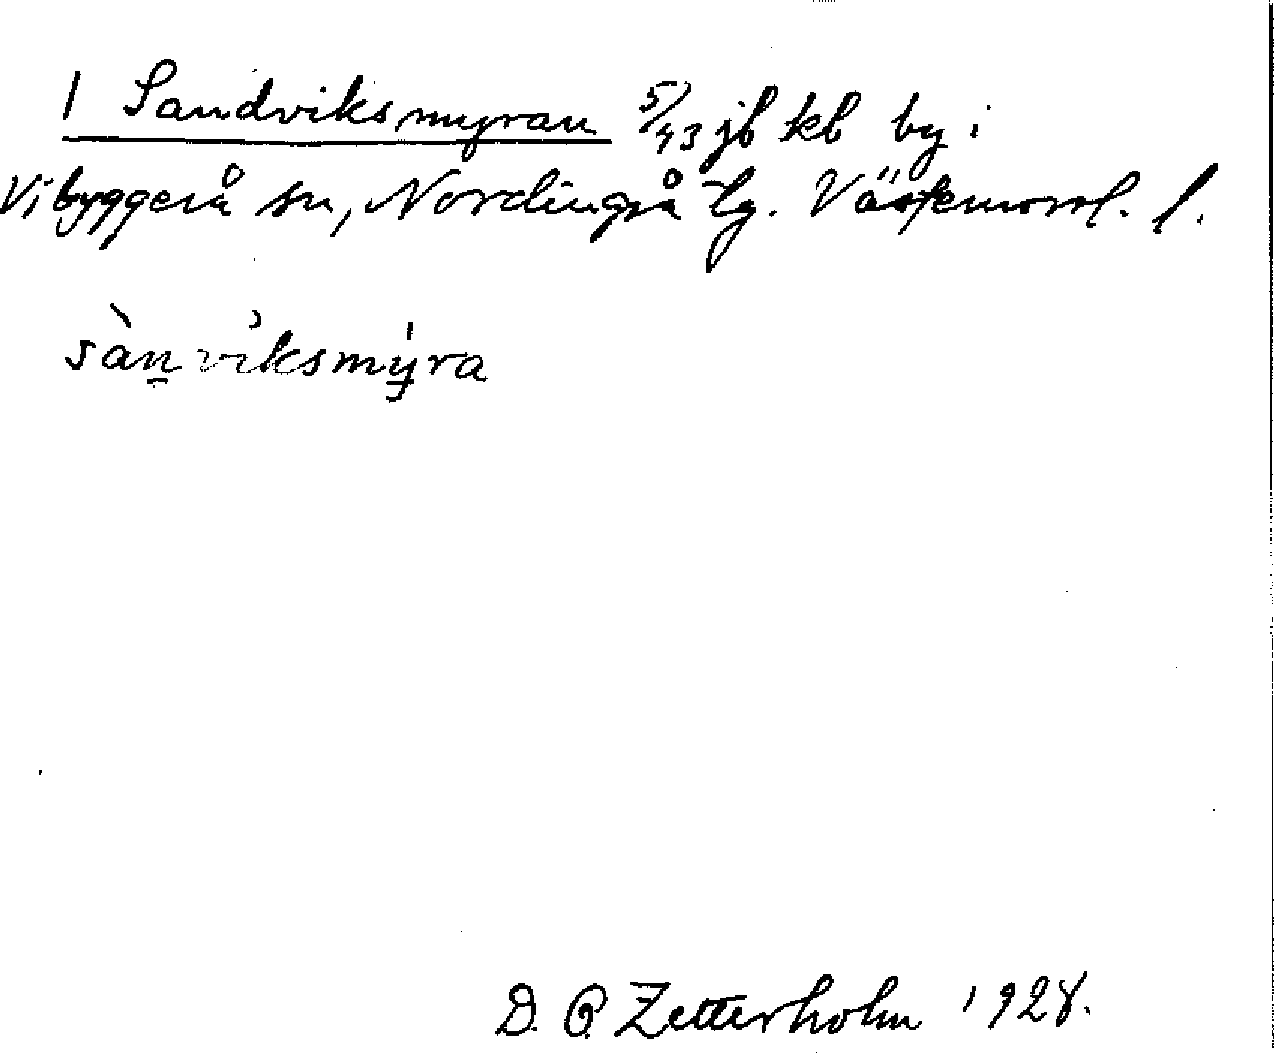 1 Sandviksmyran 5/43 jb kb by i
Vibyggerå sn, Nordingrå tg. Västernorrl. l.
sàn̠viksmýra
D. O. Zetterholm 1928.